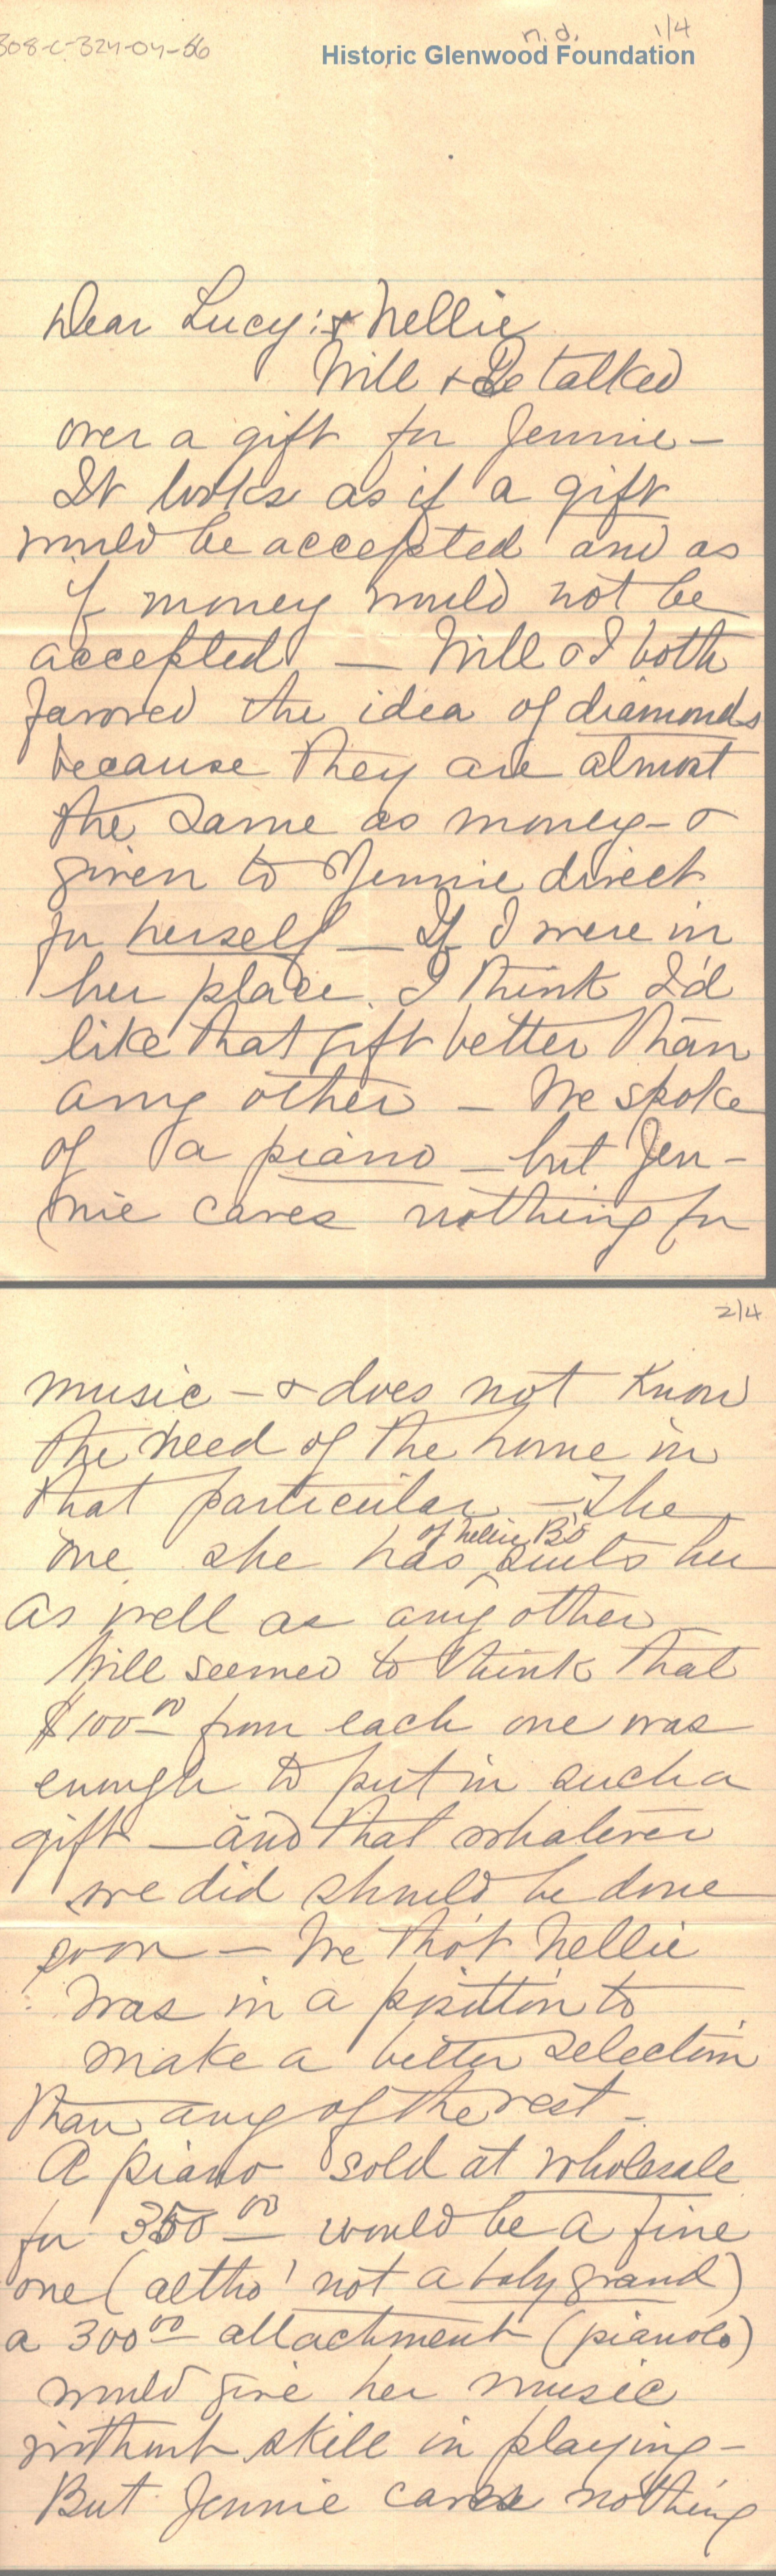 308-C-324-04-66
n.d. 1/4
Historic Glenwood Foundation
Dear Lucy: & Nellie
Will & Be talked
over a gift for Jennie —
It looks as if a gift
would be accepted and as
if money would not be
accepted — Will & I both
favored the idea of diamonds
because they are almost
the same as money — &
given to Jennie direct
for herself — If I were in
her place I think I'd
like that gift better than
any other — We spoke
of a piano — but Jen-
nie cares nothing for
2/4
music — & does not know
the need of the home in
that particular — The
of Nellie B's
one she has suits her
as well as any other —
Will seemed to think that
$100.00 from each one was
enough to put in such a
gift — and that whatever
we did should be done
soon — We tho't Nellie
was in a position to
make a better selection
than any of the rest —
A piano sold at wholesale
for 350 00 would be a fine
one (altho' not a baby grand)
a 300 00 attachment (pianola)
would give her music
without skill in playing —
But Jennie cares nothing